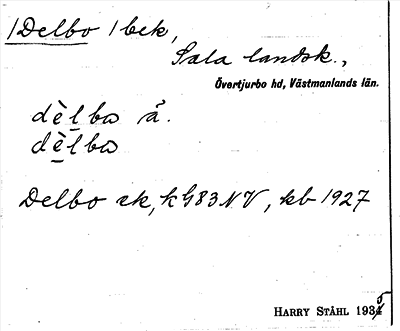 /Delbo /bek,
Sala landsk.,
Övertjurbo hd, Västmanlands län.
dèlbω å.
dèlbω
Delbo ek, kG83NV, kb 1927
HARRY STÅHL 1935